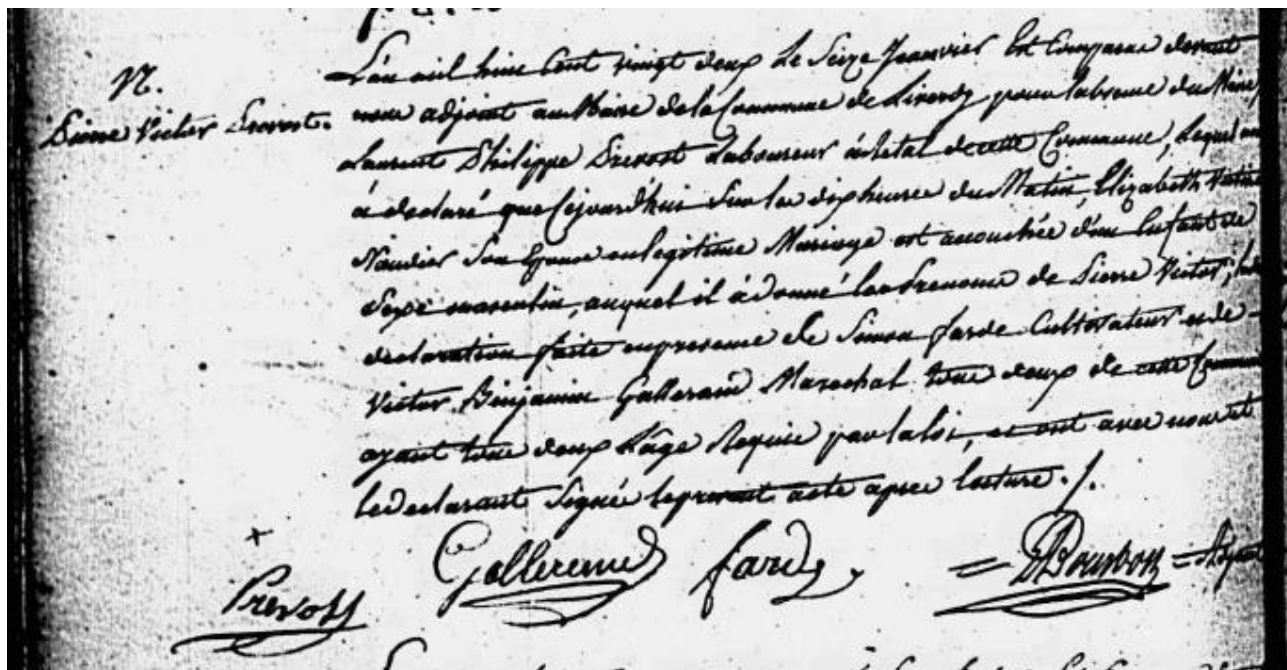 N.
Pierre Victor Prevost.
L'an mil huit Cent vingt deux Le Seize Janvier Est Comparu devant
nous adjoint au Maire de la Commune de Liverdy, pour l'absence du Maire,
Laurent Philippe Prevost Laboureur à Retal de cette Commune, Lequel
à declaré que Cejourd'hui Sur les dix heures du Matin, Elizabeth
Naudier Son Epouse en legitime Mariage est accouchée d'un Enfant de
Sexe masculin, auquel il à donné les Prenoms de Pierre Victor;
declaration faite en presence de Simon farde Cultivateur et de
Victor Benjamin Gallerand Marechal tous deux de cette Commune
ayant tous deux l'âge Requis par la loi, et ont avec nous et
le declarant Signé le present acte apres lecture ./.
Prevost fard